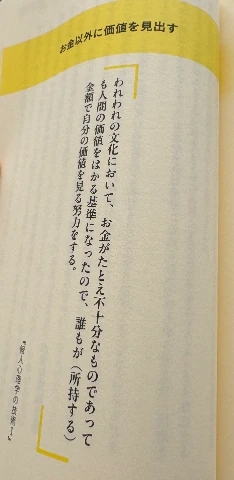 お金以外に価値を見出す
われわれの文化において、お金がたとえ不十分なものであって
も人間の価値をはかる基準になったので、誰もが（所持する）
金額で自分の価値を見る努力をする。
『個人心理学の技術Ⅰ』